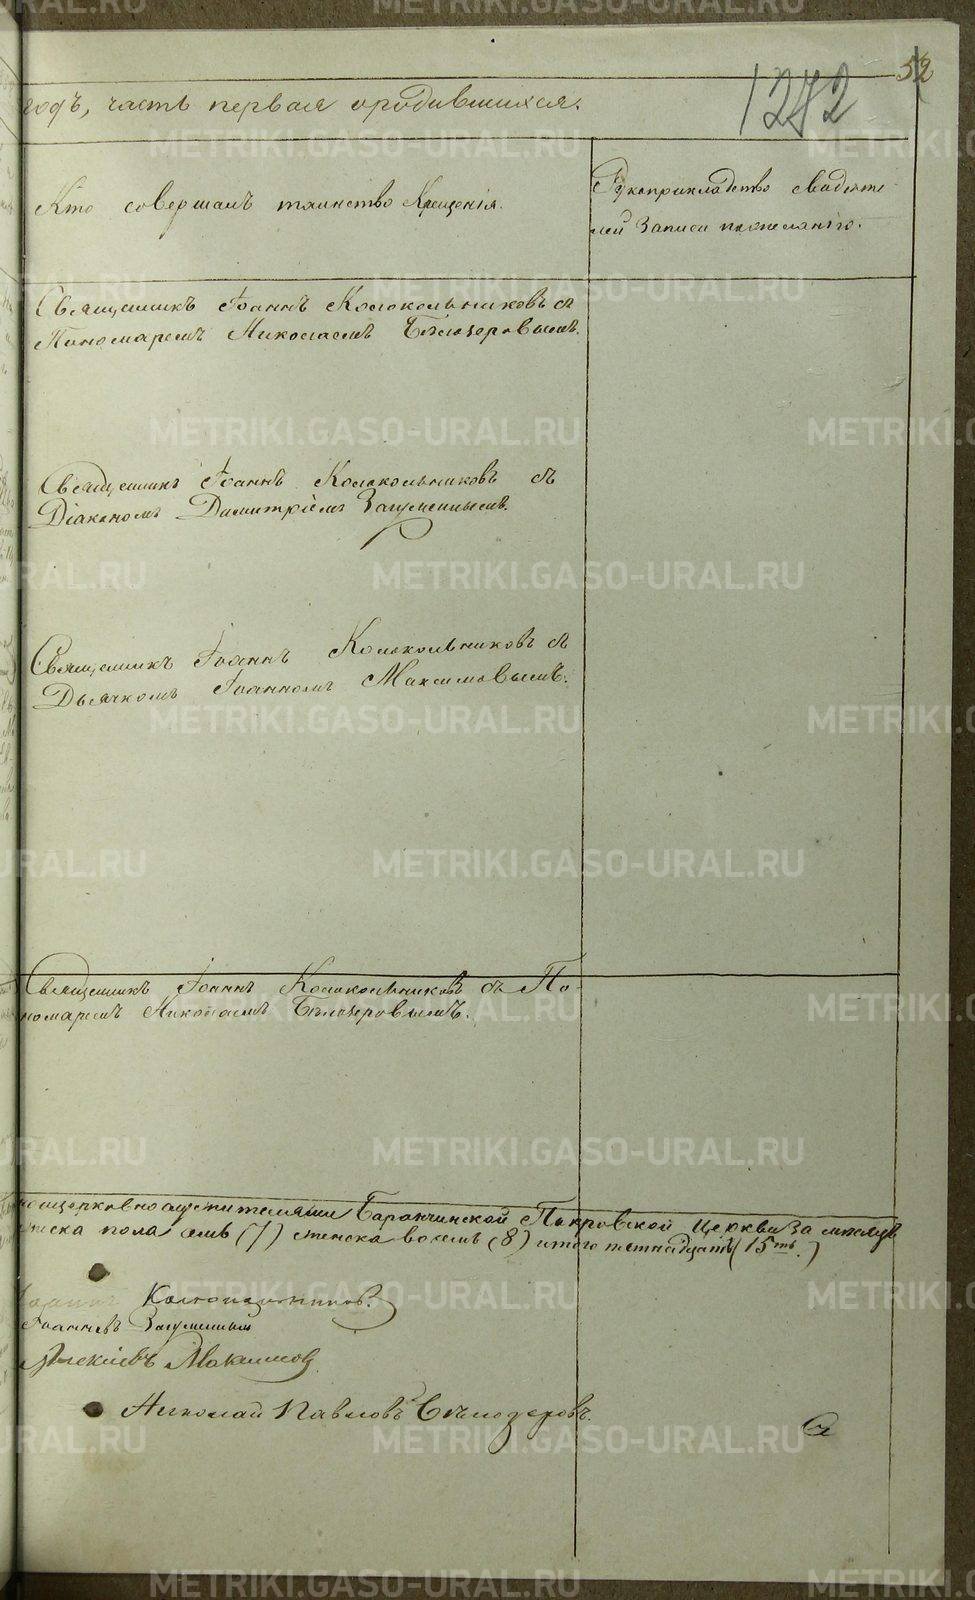 52
1242
годъ, часть первая ородившихся.
Кто совершалъ таинство Крещенія.
Рукоприкладство свидѣте-
лей Записи пожеланію.
Священникъ Іоаннъ Колокольниковъ съ
Пономаремъ Николаемъ Бѣлозеровымъ.
Священникъ Іоаннъ Колокольниковъ съ
Діакономъ Димитріемъ Загуменнымъ.
Священникъ Іоаннъ Колокольниковъ съ
Дьячкомъ Іоанномъ Максимовымъ.
Священникъ Іоаннъ Колокольниковъ съ По-
номаремъ Николаемъ Бѣлозеровымъ.
Баранчинской Покровской Церкви За мѣсяцъ
пола семь (7) женска восемь (8) итого пятнадцать (15ть.)
Іоаннъ Колокольниковъ.
Іоанновъ Загуменный
Максимовъ
Николай Павловъ Бѣлозеровъ.
METRIKI.GASO-URAL.RU